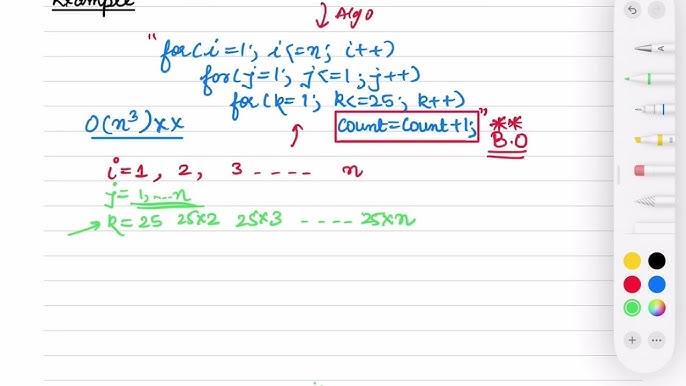 Example
Algo
"for(i=1; i<=n; i++)
for(j=1; j<=1; j++)
for(k=1; k<=25; k++)
O(n³)xx
count=count+1;" ** B.O
i=1, 2, 3 ---- n
j=1,...n
k=25 25x2 25x3 ---- 25xn